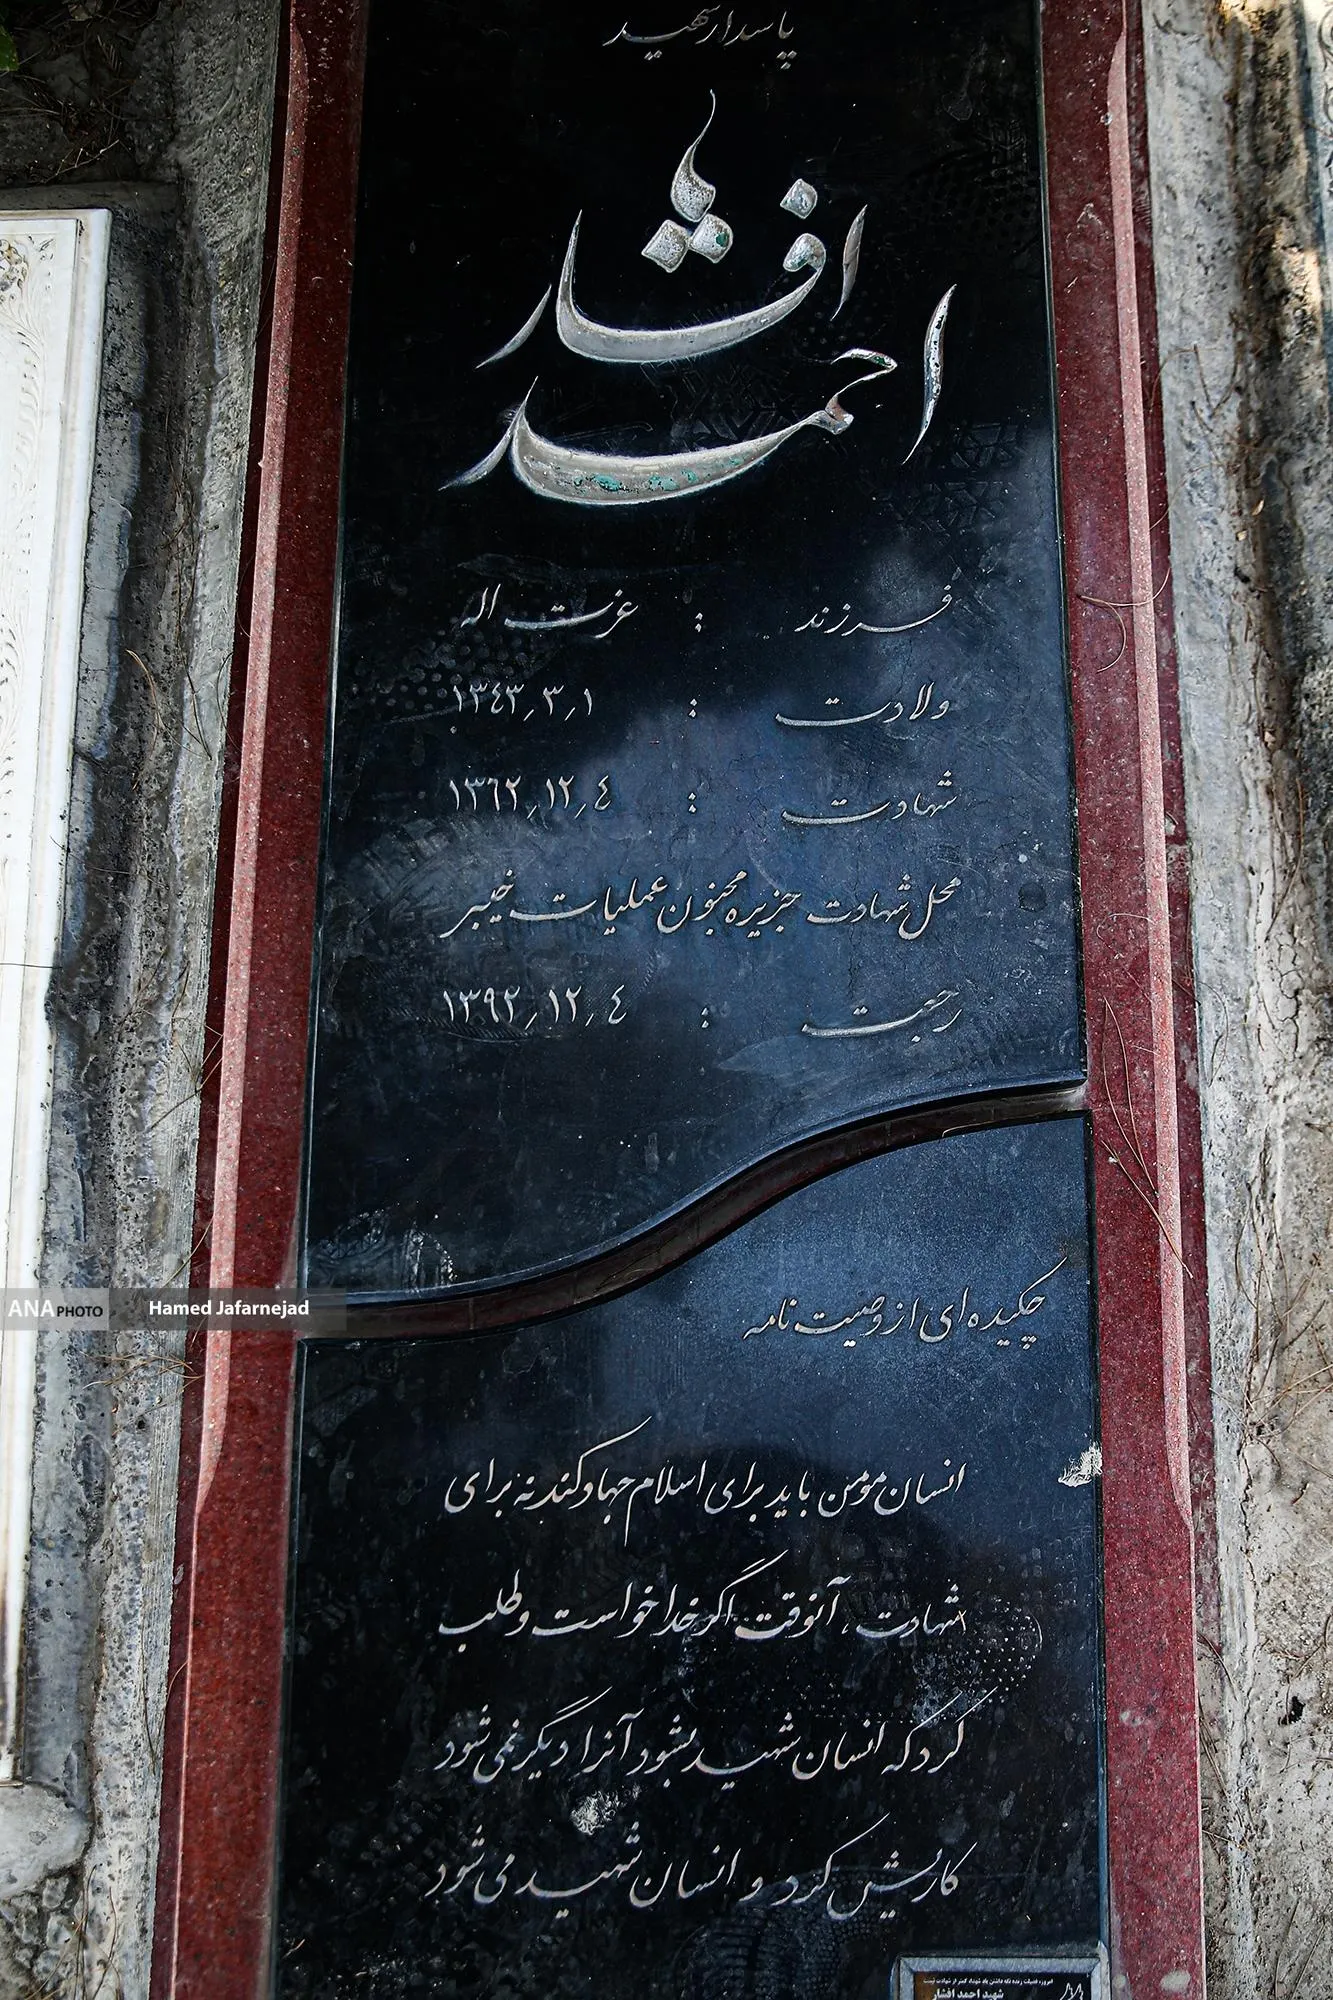 پاسدار شهید
احمد افشار
فرزند : عزت اله
ولادت : ۱٫۳٫۱۳٤۳
شهادت : ٤٫۱۲٫۱۳٦۲
محل شهادت جزیره مجنون عملیات خیبر
رجعت : ٤٫۱۲٫۱۳۹۲
چکیده ای از وصیت نامه
انسان مومن باید برای اسلام جهاد کند نه برای
شهادت ، آنوقت اگر خدا خواست و طلب
کرد که انسان شهید بشود آنرا دیگر نمی شود
کاریش کرد و انسان شهید می شود
امروزه فضیلت زنده نگه داشتن یاد شهدا کمتر از شهادت نیست
شهید احمد افشار
ANA PHOTO Hamed Jafarnejad